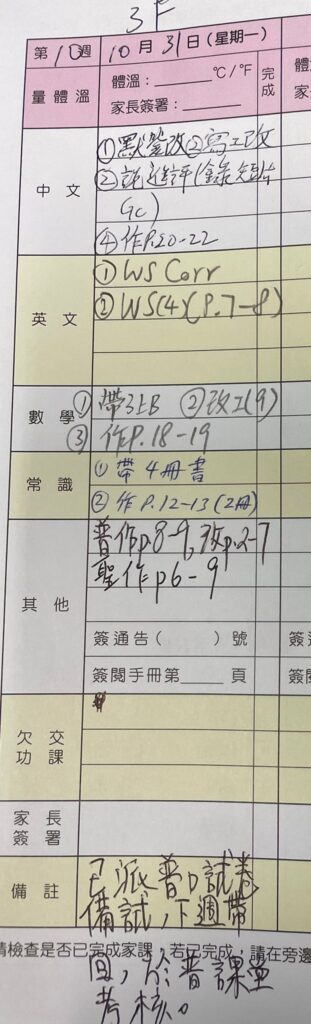 3F
第10週 10月31日(星期一) 完成
量體溫 體溫：______°C/°F
家長簽署：______
中文 ①默簽改②寫工改
②說進評(錄短片
GC)
④作P.20-22
英文 ① WS Corr
② WS(4)(P.7-8)
數學 ①帶3上B ②改工(9)
③作P.18-19
常識 ①帶4冊書
②作P.12-13(2冊)
其他 普作p.8-9,改p.2-7
聖作p6-9
簽通告( )號
簽閱手冊第____頁
欠交功課
家長簽署
備註 已派普口試卷
備試，下週帶
請檢查是否已完成家課，若已完成，請在旁邊
回，於普課堂
考核。